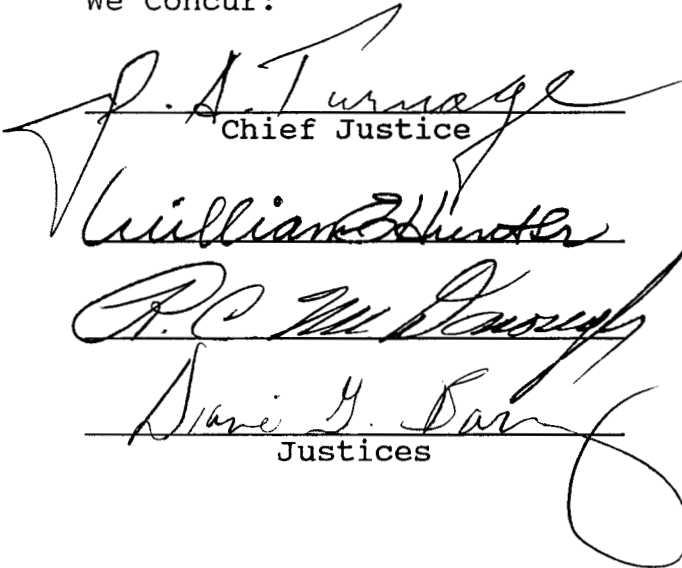 We Concur:
J. A. Turnage
Chief Justice
William E Hunter
R. C. McDonough
Diane G. Barz
Justices